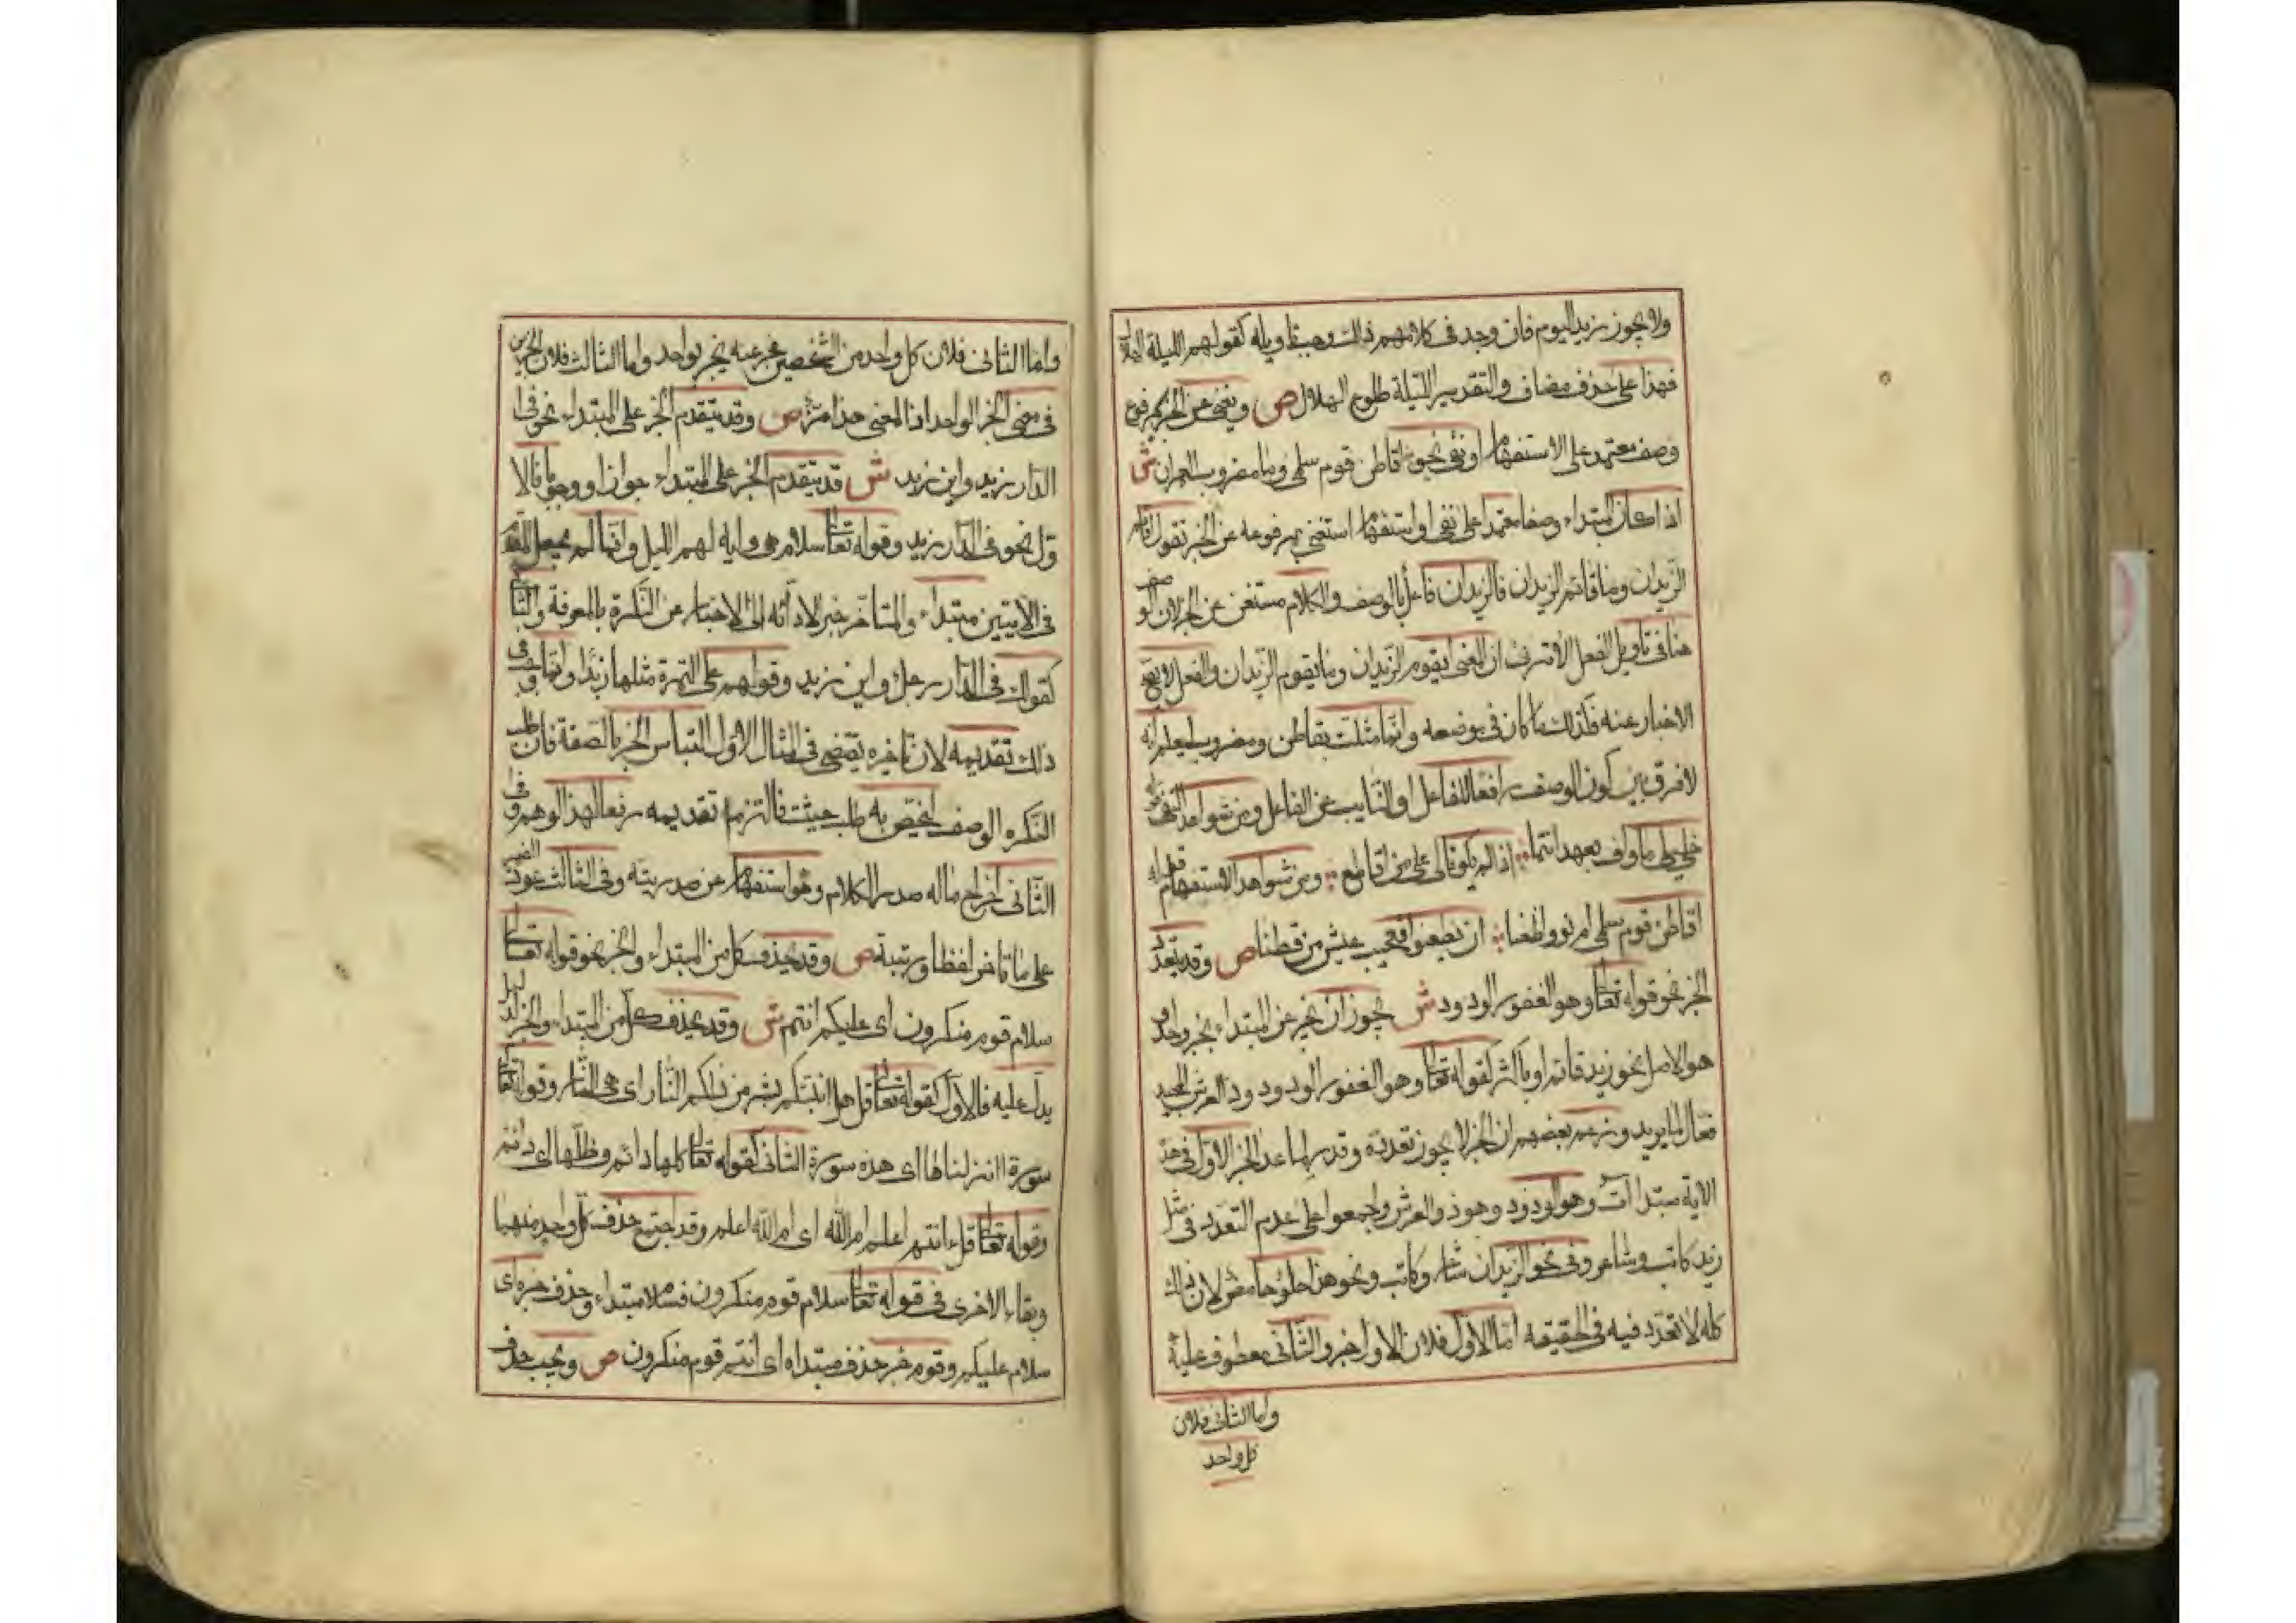 ولا يجوز زيد اليوم فان وجد في كلامهم ذلك وجب تاويله كقولهم الليلة الهلال
فهذا على حذف مضاف والتقدير الليلة طلوع الهلال ص ويغني عن الخبر مرفوع
وصف معتمد على الاستفهام او نفي نحو اقاطن قوم سلمى وما مضروب العمران ش
اذا كان المبتداء وصفا معتمدا على نفي او استفهام استغنى بمرفوعه عن الخبر تقول اقائم
الزيدان وما قائم الزيدان فالزيدان فاعل بالوصف والكلام مستغن عن الخبر لان الوصف
هنا في تاويل الفعل الا ترى ان المعنى ايقوم الزيدان وما يقوم الزيدان والفعل لا يصح
الاخبار عنه فكذلك ما كان في موضعه وانما مثلت بقاطن ومضروب ليعلم انه
لا فرق بين كون الوصف رافعا للفاعل او النايب عن الفاعل ومن شواهد النفي قوله
خليلي ما واف بعهد انتما اذا لم تكونا لي على من اقاطع ومن شواهد الاستفهام قوله
اقاطن قوم سلمى ام نووا ظعنا ان يظعنوا فعجيب عيش من قطنا ص وقد يتعدد
الخبر نحو قوله تعالى وهو الغفور الودود ش يجوز ان يخبر عن المبتداء بخبر واحد و
هو الاصل نحو زيد قائم او باكثر كقوله تعالى وهو الغفور الودود ذو العرش المجيد
فعال لما يريد وزعم بعضهم ان الخبر لا يجوز تعدده وقدر لما عدا الخبر الاول في هذه
الاية مبتدات وهو الودود وهو ذو العرش واجمعوا على عدم التعدد في مثل
زيد كاتب وشاعر وفي نحو الزيدان شاعر وكاتب ونحو هذا حلو حامض لان ذلك
كله لا تعدد فيه في الحقيقه اما الاول فلان الاول خبر والثاني معطوف عليه
واما الثاني فلان
كل واحد
واما الثاني فلان كل واحد من الشخصين مخبر عنه بخبر واحد واما الثالث فلان الخبرين
في معنى الخبر الواحد اذ المعنى هذا مز ص وقد يتقدم الخبر على المبتداء نحو في
الدار زيد واين زيد ش قد يتقدم الخبر على المبتداء جوازا او وجوبا فالا
ول نحو في الدار زيد وقوله تعالى سلام هي واية لهم الليل وانما لم يجعل المقدم
في الايتين مبتداء والمتاخر خبر لادائه الى الاخبار عن النكرة بالمعرفة والثاني
كقولك في الدار رجل واين زيد وقولهم على التمرة مثلها زبدا وانما وجب في
ذلك تقديمه لان تاخيره يقتضي في المثال الاول التباس الخبر بالصفة فان طلب
النكره الوصف لتختص به طلب حثيث فالتزم تقديمه رفعا لهذا الوهم وفي
الثاني اخراج ماله صدر الكلام وهو استفهام عن صدريته وفي الثالث عود الضمير
على ما تاخر لفظا ورتبة ص وقد يحذف كل من المبتداء والخبر نحو قوله تعالى
سلام قوم منكرون اى عليكم انتم ش وقد يحذف كل من المبتداء والخبر لدليل
يدل عليه فالاول كقوله تعالى قل هل انبئكم بشر من ذلكم النار اى هي النار وقوله تعالى
سورة انزلناها اى هذه سورة الثاني كقوله تعالى اكلها دائم وظلها اى دائم
وقوله تعالى قل ءانتم اعلم ام الله اى ام الله اعلم وقد اجتمع حذف كل واحد منهما
وبقاء الاخرى في قوله تعالى سلام قوم منكرون فسلام مبتداء وحذف خبره اى
سلام عليكم وقوم خبر حذف مبتداه اى انتم قوم منكرون ص ويجب حذف